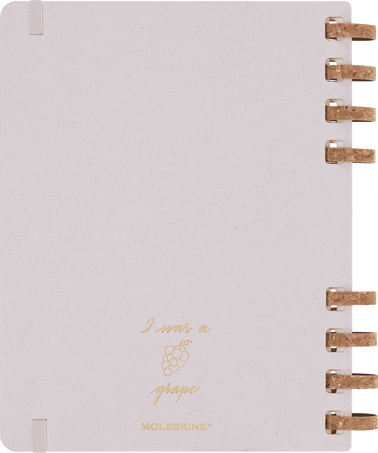 I was a
grape
MOLESKINE®